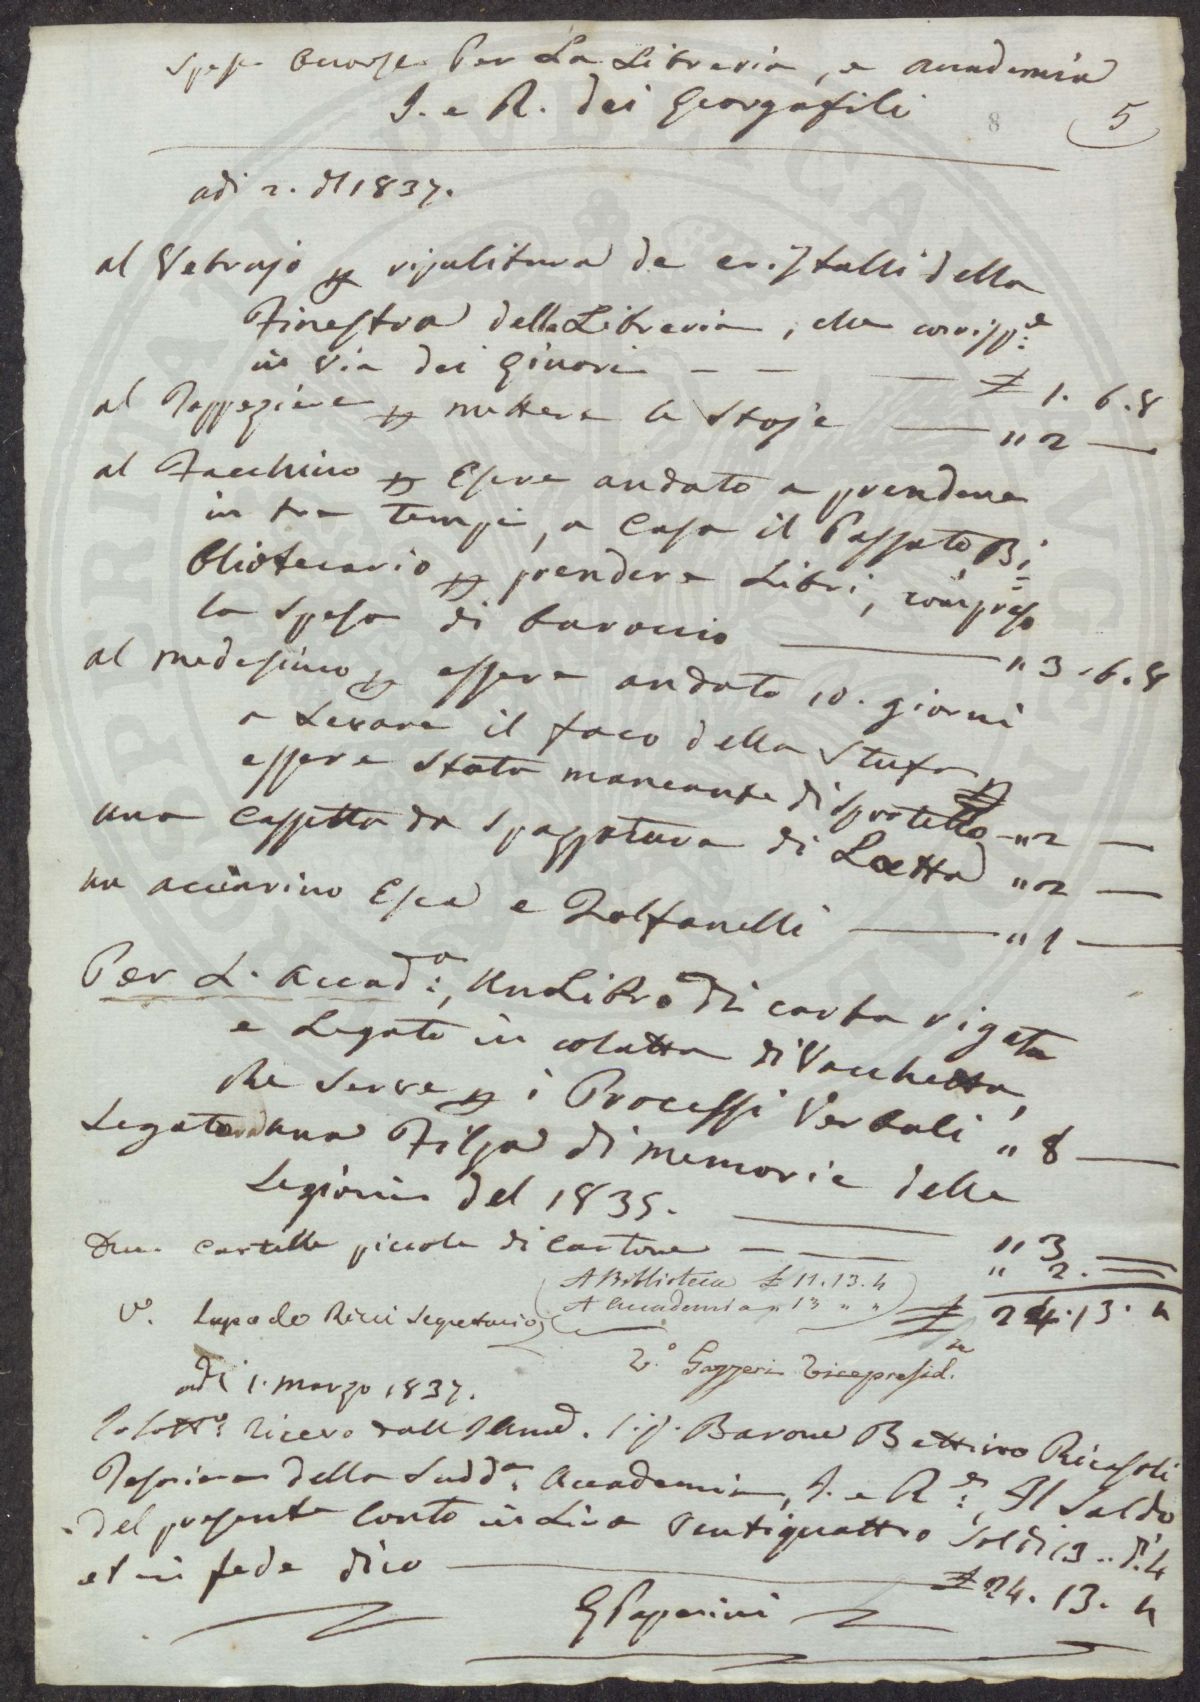 Spese Occorse Per La Libreria, e Accademia
I. e R. dei Georgofili
8
5
adi 2. 1837.
al Vetrajo p ripulitura de cristalli della
Finestra della Libreria, che corrisp:e
in Via dei Ginori — — — £ 1. 6. 8
al Tappeziere p mettere le Stoje — " 2 —
al Facchino p Esere andato a prendere
in tre tempi, a Casa il Passato Bi
bliotecario p prendere Libri, compreso
la spesa di baroccio — " 3. 6. 8
al medesimo p essere andato 10. giorni
a Levare il foco della Stufa p
essere stato mancante di Sportello — " 2 —
una Cassetta da Spazzatura di Latta " 2 —
un acciarino Esca e Zolfanelli — " 1 —
Per L. Accad:a, Un Libro di carta rigata
e Legato in colatta di Vacchetta,
che serve p i Processi Verbali " 8 —
Legato una Filza di memorie delle
Lezioni del 1835. — " 3 —
Due cartelle piccole di Cartone — — " 2. —
A Biblioteca £ 11. 13. 4
A Accademia " 13 " "
£ 24. 13. 4
Vo. Lapo de Ricci Segretario
Vo. Gazzeri Vicepresid.te
adi 1. marzo 1837.
Io Sotto: Ricevo dall Illmo. Sig. Barone Bettino Ricasoli
Tesoriere della Sudd:a Accademia, I. e R:e, Il Saldo
del presente Conto in Lire Ventiquattro Soldi 13 .. d. 4
et in fede dico — £ 24. 13. 4
G Paperini